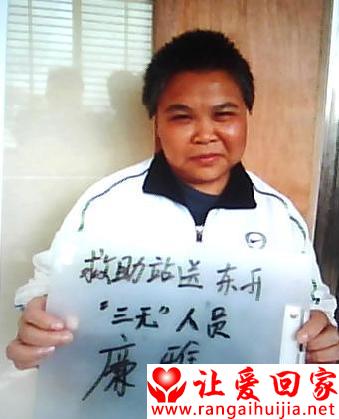 救助站送 东升
"三无"人员
廉雅
让爱回家
www.rangaihuijia.net